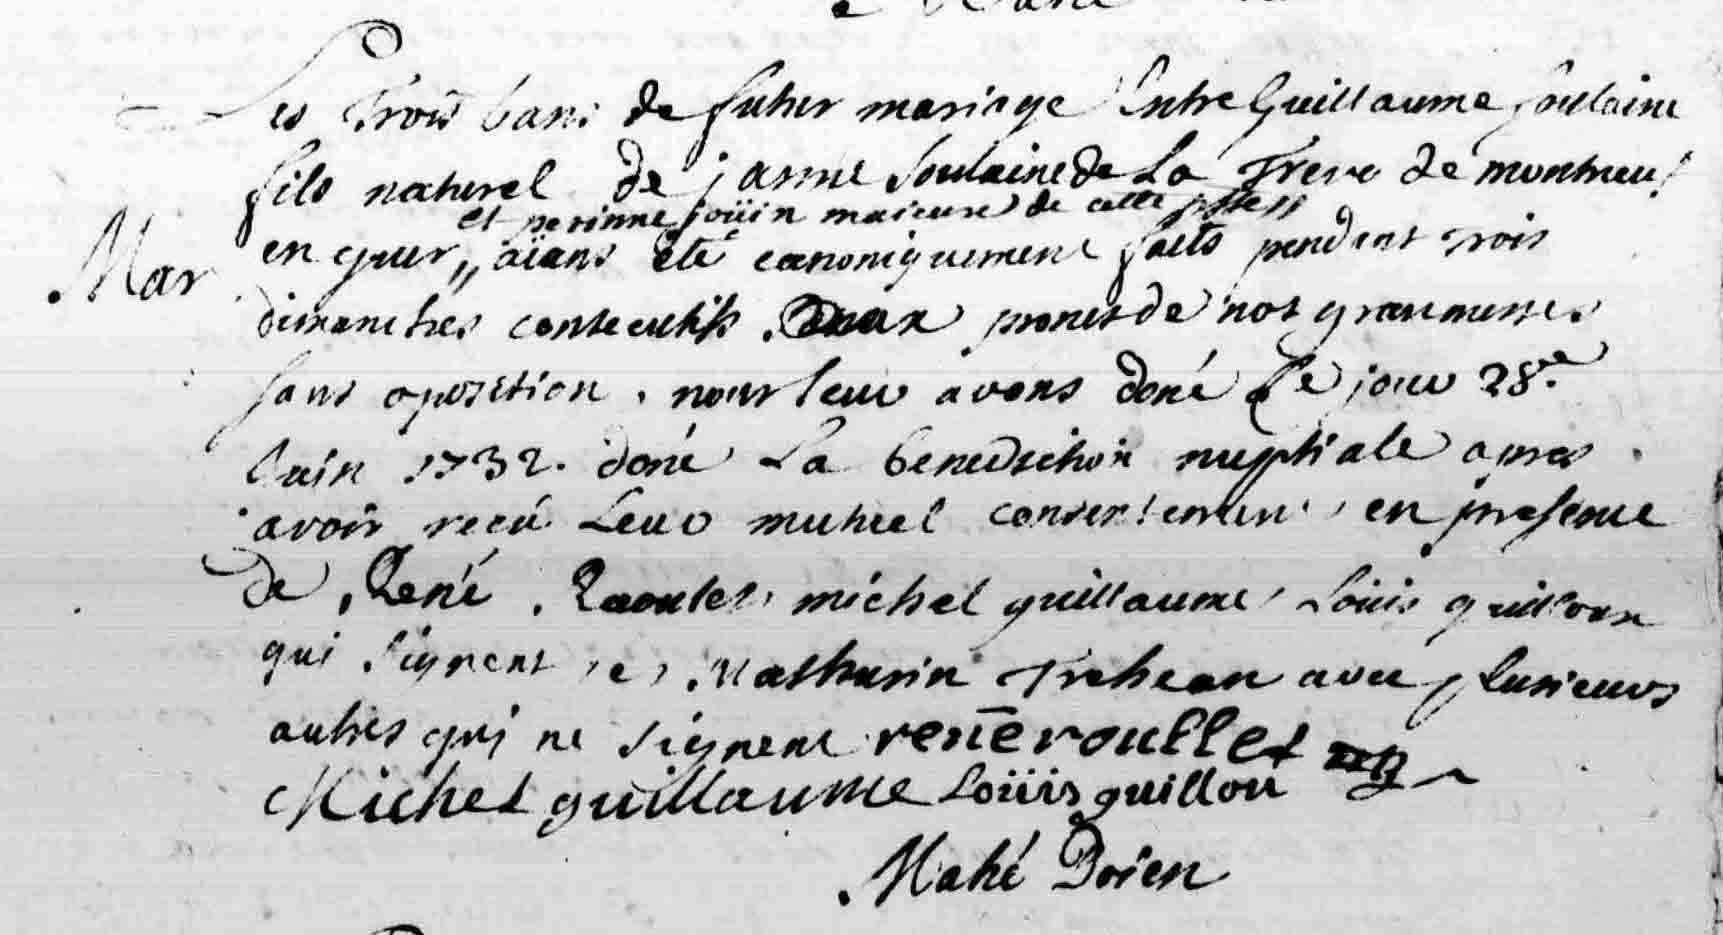 Les Trois bans de futur mariage Entre Guillaume Soulaine
fils naturel de janne Soulaine de La Treve de montreul
et perinne joüin maieure de cette psse //
Mar
en guer // aïans été canoniquement faits pendent trois
dimanches consecutifs aux prones de nos gran messes
sans oposition, nous leur avons doné Le jour 28e
Juin 1732. doné La benediction nuptiale apres
avoir reçu Leur mutuel consentement, en presence
de René Raoulet, michel guillaume, Loüis guillou
qui signent, et Mathurin Treheau avec plusieurs
autres qui ne signent rené roullet
Michel guillaume Loüis guillou
Mahé Doien